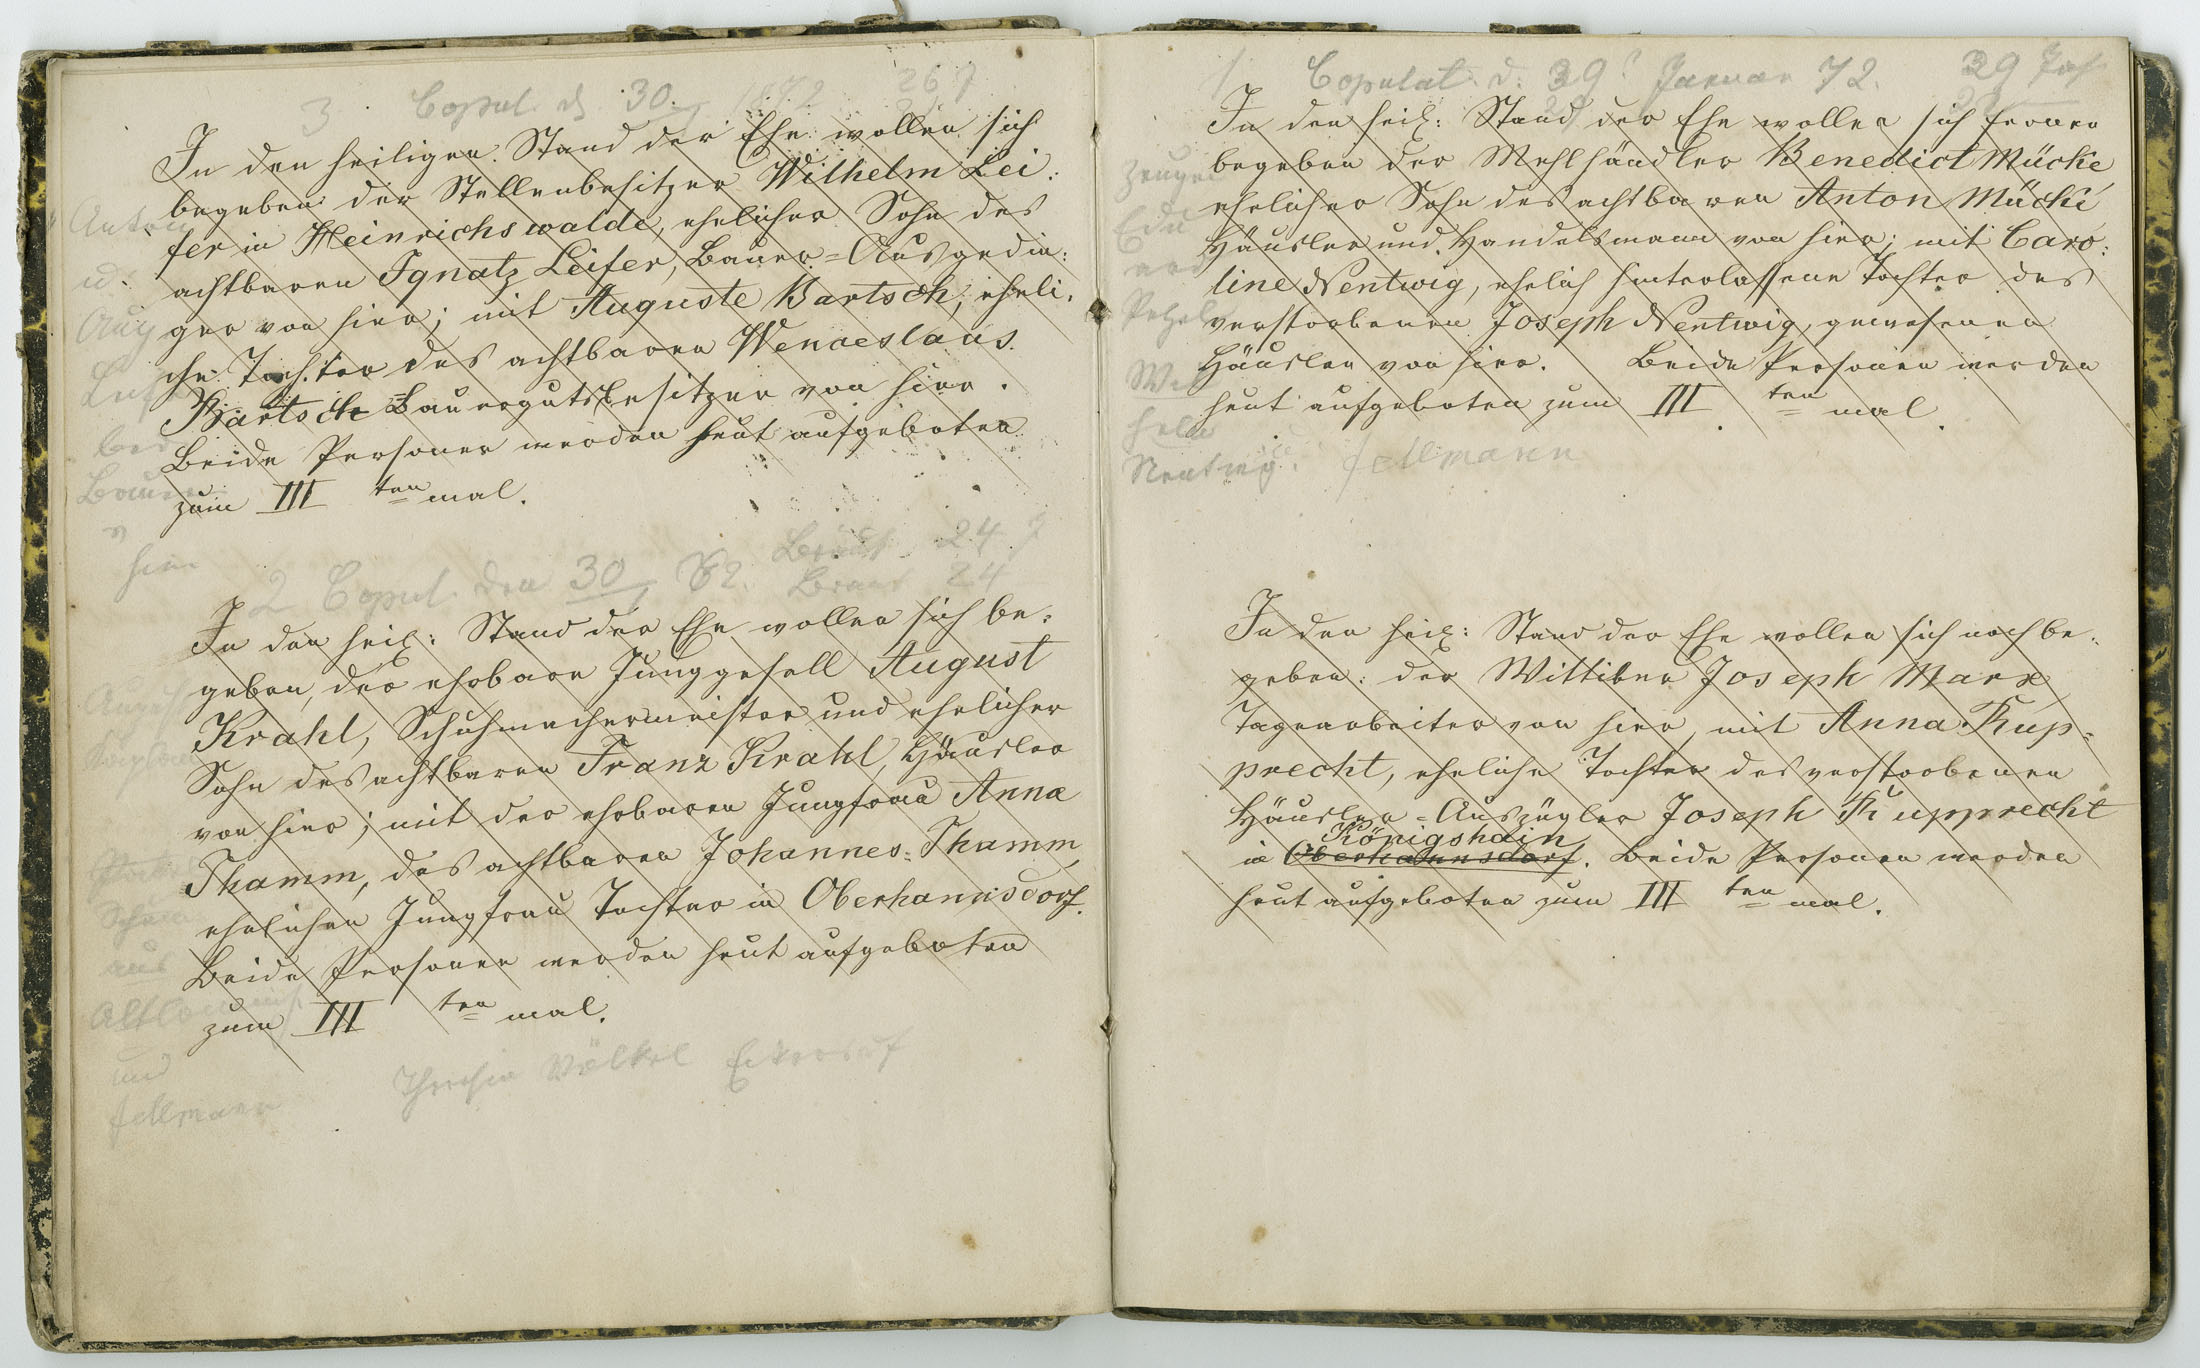 3. Copul. d. 30. 1872 26 J
In den heiligen Stand der Ehe wollen sich
begeben der Stellenbesitzer Wilhelm Lei:
fer in Heinrichswalde, ehelicher Sohn des
achtbaren Ignatz Leifer, Bauer=Ausgedin:
ger von hier; mit Auguste Bartsch, eheli:
che Tochter des achtbaren Wenceslaus
Bartsch Bauergutsbesitzer von hier.
Beide Personen werden heut aufgeboten
zum III ten mal.
Anton
u:
Aug
Bauer
hier
2 Copul. den 30 72. Bräut 24 J
Braut 24
In den heil: Stand der Ehe wollen sich be:
geben, der ehrbare Junggesell August
Krahl, Schuhmachermeister und ehelicher
Sohn des achtbaren Franz Krahl, Häusler
von hier; mit der ehrbaren Jungfrau Anna
Thamm, des achtbaren Johannes Thamm,
ehelichen Jungfrau Tochter in Oberhannsdorf.
Beide Personen werden heut aufgeboten
zum III ten mal.
aus
und
Fellmann
Thresia Völkel Eckersdorf
1 Copulat. d. 29 Januar 72. 29 Jahr
In den heil: Stand der Ehe wollen sich ferner
begeben der Mehlhändler Benedict Mücke
ehelicher Sohn des achtbaren Anton Mücke
Häusler und Handelsmann von hier; mit Caro:
line Nentwig, ehelich hinterlassene Tochter des
verstorbenen Joseph Nentwig, gewesenen
Häusler von hier. Beide Personen werden
heut aufgeboten zum III ten mal.
Zeugen
Edu
ard
Petzel
Wil
helm
Nentwig. Fellmann
In den heil: Stand der Ehe wollen sich noch be:
geben: der Wittiber Joseph Marx
Tagearbeiter von hier, mit Anna Rup=
precht, eheliche Tochter des verstorbenen
Häusler=Auszügler Joseph Rupprecht
Königshain
in Oberhannsdorf. Beide Personen werden
heut aufgeboten zum III ten mal.